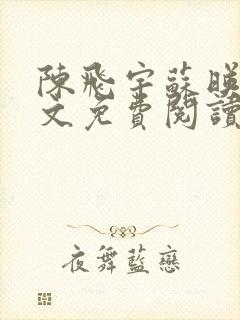 陳飛宇蘇映
文免費閱讀
夜舞藍戀